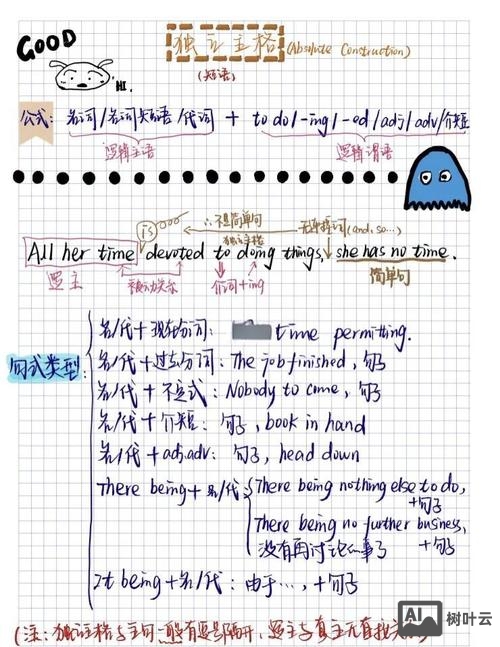 GOOD
HI.
独立主格 (Absolute Construction)
(短语)
公式: 名词/名词短语/代词 + to do/-ing/-ed/adj/adv/介短
逻辑主语 逻辑谓语
is ∴不是简单句 无连接词(and, so...)
独立主格
All her time devoted to doing things, she has no time.
逻主 被动关系 介词+ing 简单句
句式类型:
名/代+现在分词: time permitting.
名/代+过去分词: The job finished, 句子
名/代+不定式: Nobody to come, 句子
名/代+介短: 句子, book in hand
名/代+adj.adv: 句子, head down
There being+名/代 There being nothing else to do,
+句子
There being no further business,
没有再讨论的事了 +句子
It being+名/代: 由于..., +句子
(注: 独立主格与主句一般有逗号隔开, 逻主与真主无直接
AI 树叶云